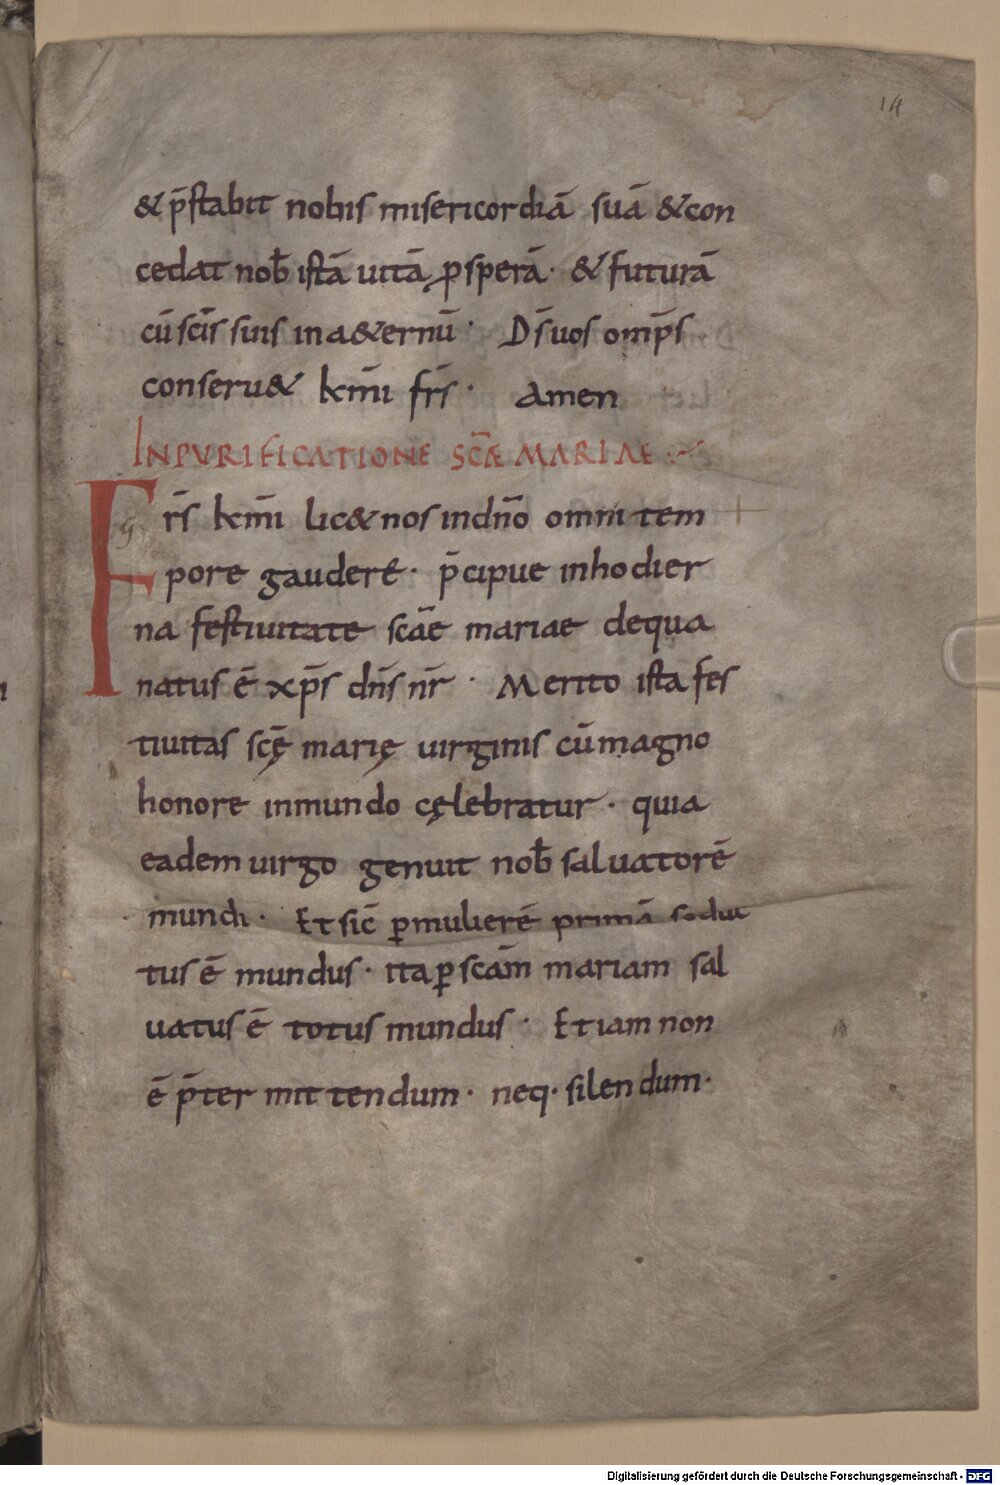 14
& p̄stabit nobis misericordiā suā & con
cedat nob̄ istā uitā ꝓsperā· & futurā
cū sc̄is suis in a&ernū · Ds̄ uos omp̄s
conseru& km̄i fr̄s · amen
IN PVRIFICATIONE SC̄Æ MARIAE
Fr̄s km̄i lic& nos in dn̄o omni tem
pore gaudere · p̄cipue in hodier
na festiuitate scāe mariae de qua
natus ē xp̄s dn̄s nr̄ · Merito ista fes
tiuitas sc̄ę marię uirginis cū magno
honore in mundo cęlebratur · quia
eadem uirgo genuit nob̄ saluatorē
mundi · Et sic̄ ꝑ mulierē primā seduc
tus ē mundus · ita ꝑ scām mariam sal
uatus ē totus mundus · Etiam non
ē p̄ter mittendum · neq· silendum·
Digitalisierung gefördert durch die Deutsche Forschungsgemeinschaft - DFG